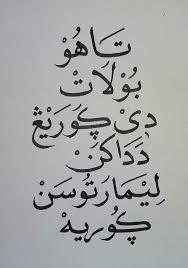 تَاهُوْ
بُوْلَاتْ
دِيْ ڬَورَيْڠْ
دَدَاكَنْ
لِيْمَارَتُوْسَنْ
ڬُورِيهْ